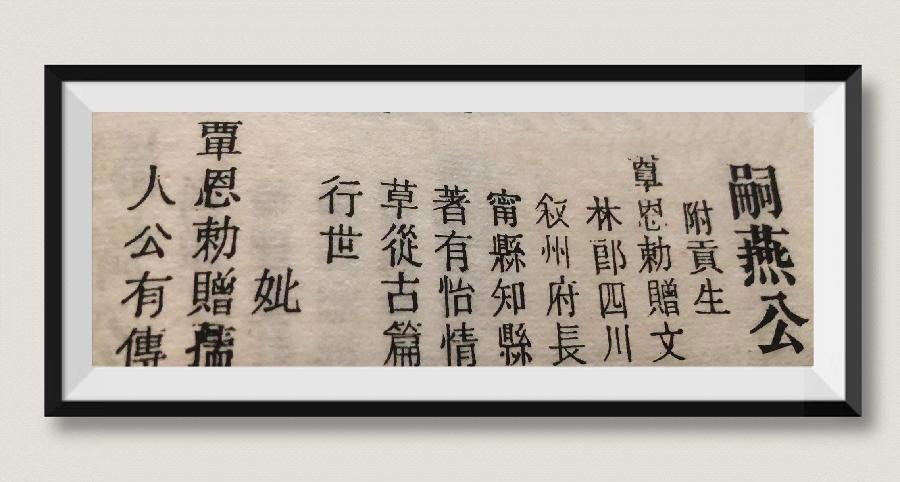 嗣燕公
附貢生
覃恩勅贈文
林郎四川
叙州府長
甯縣知縣
著有怡情
草從古篇
行世
妣
覃恩勅贈孺
人公有傳